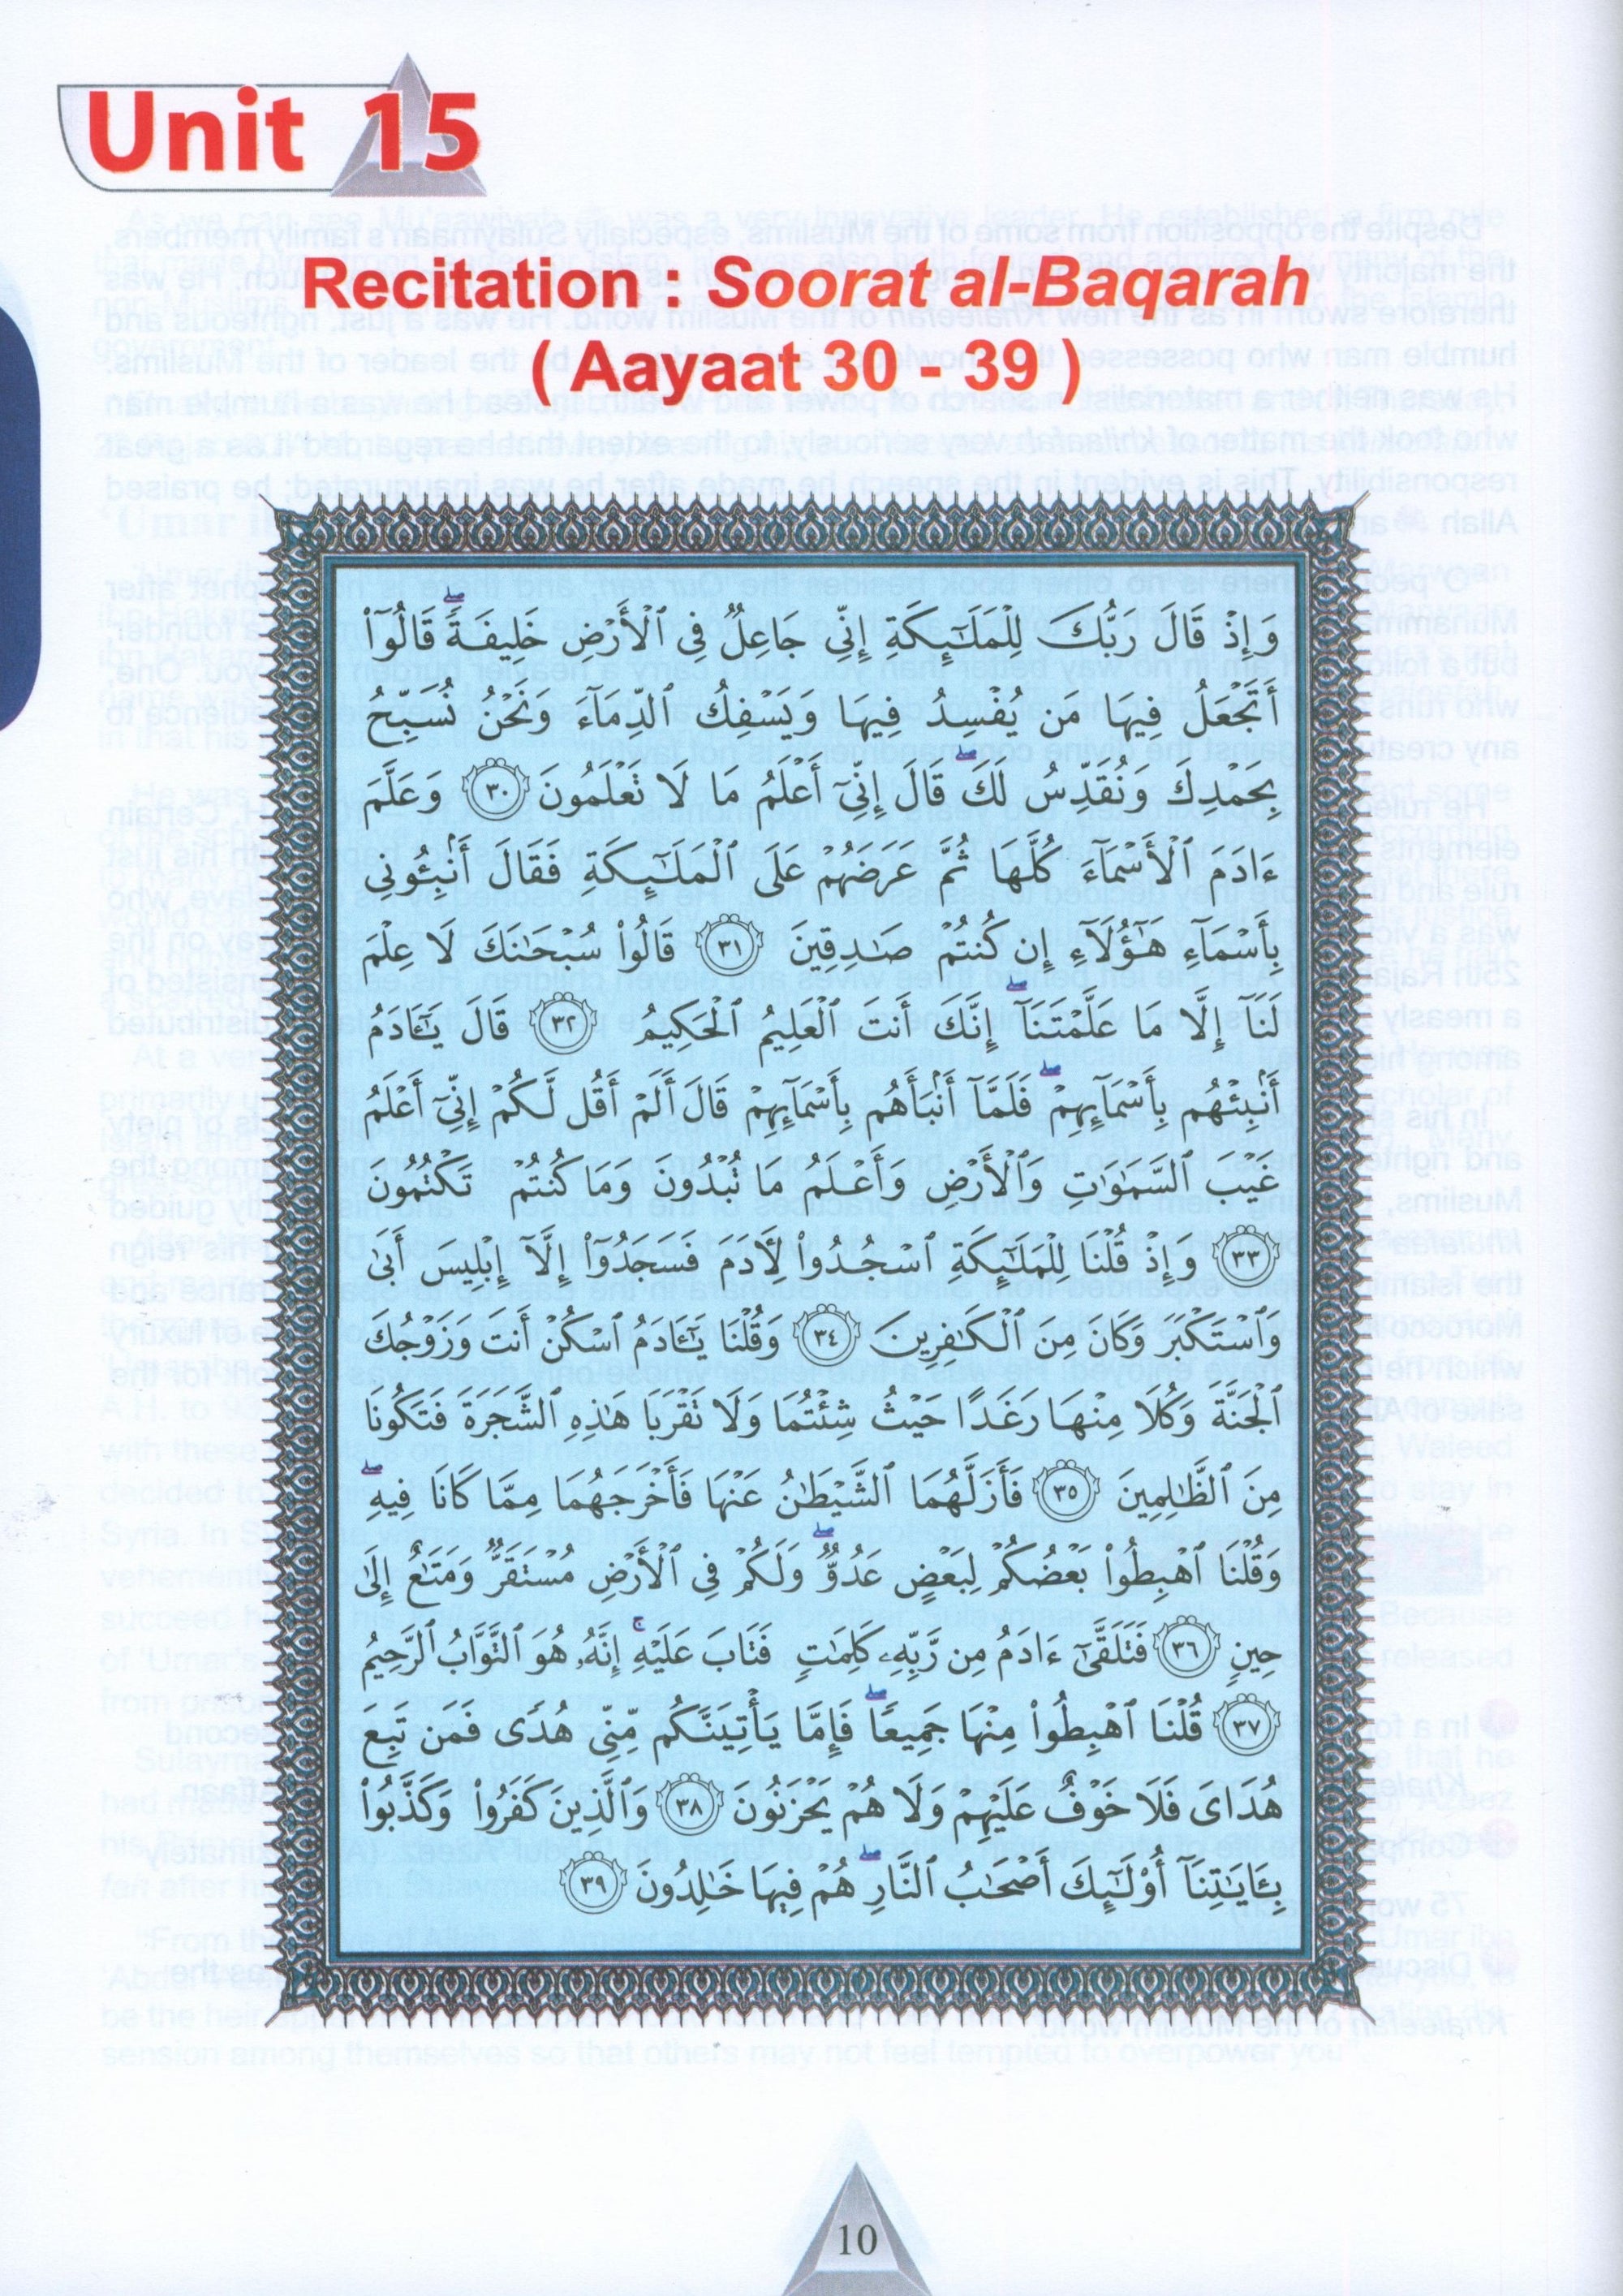 Unit 15
Recitation : Soorat al-Baqarah
( Aayaat 30 - 39 )
وَإِذْ قَالَ رَبُّكَ لِلْمَلَٰٓئِكَةِ إِنِّى جَاعِلٌ فِى ٱلْأَرْضِ خَلِيفَةً ۖ قَالُوٓا۟
أَتَجْعَلُ فِيهَا مَن يُفْسِدُ فِيهَا وَيَسْفِكُ ٱلدِّمَآءَ وَنَحْنُ نُسَبِّحُ
بِحَمْدِكَ وَنُقَدِّسُ لَكَ ۖ قَالَ إِنِّىٓ أَعْلَمُ مَا لَا تَعْلَمُونَ ٣٠ وَعَلَّمَ
ءَادَمَ ٱلْأَسْمَآءَ كُلَّهَا ثُمَّ عَرَضَهُمْ عَلَى ٱلْمَلَٰٓئِكَةِ فَقَالَ أَنۢبِـُٔونِى
بِأَسْمَآءِ هَٰٓؤُلَآءِ إِن كُنتُمْ صَٰدِقِينَ ٣١ قَالُوا۟ سُبْحَٰنَكَ لَا عِلْمَ
لَنَآ إِلَّا مَا عَلَّمْتَنَآ ۖ إِنَّكَ أَنتَ ٱلْعَلِيمُ ٱلْحَكِيمُ ٣٢ قَالَ يَٰٓـَٔادَمُ
أَنۢبِئْهُم بِأَسْمَآئِهِمْ ۖ فَلَمَّآ أَنۢبَأَهُم بِأَسْمَآئِهِمْ قَالَ أَلَمْ أَقُل لَّكُمْ إِنِّىٓ أَعْلَمُ
غَيْبَ ٱلسَّمَٰوَٰتِ وَٱلْأَرْضِ وَأَعْلَمُ مَا تُبْدُونَ وَمَا كُنتُمْ تَكْتُمُونَ
٣٣ وَإِذْ قُلْنَا لِلْمَلَٰٓئِكَةِ ٱسْجُدُوا۟ لِـَٔادَمَ فَسَجَدُوٓا۟ إِلَّآ إِبْلِيسَ أَبَىٰ
وَٱسْتَكْبَرَ وَكَانَ مِنَ ٱلْكَٰفِرِينَ ٣٤ وَقُلْنَا يَٰٓـَٔادَمُ ٱسْكُنْ أَنتَ وَزَوْجُكَ
ٱلْجَنَّةَ وَكُلَا مِنْهَا رَغَدًا حَيْثُ شِئْتُمَا وَلَا تَقْرَبَا هَٰذِهِ ٱلشَّجَرَةَ فَتَكُونَا
مِنَ ٱلظَّٰلِمِينَ ٣٥ فَأَزَلَّهُمَا ٱلشَّيْطَٰنُ عَنْهَا فَأَخْرَجَهُمَا مِمَّا كَانَا فِيهِ ۖ
وَقُلْنَا ٱهْبِطُوا۟ بَعْضُكُمْ لِبَعْضٍ عَدُوٌّ ۖ وَلَكُمْ فِى ٱلْأَرْضِ مُسْتَقَرٌّ وَمَتَٰعٌ إِلَىٰ
حِينٍ ٣٦ فَتَلَقَّىٰٓ ءَادَمُ مِن رَّبِّهِۦ كَلِمَٰتٍ فَتَابَ عَلَيْهِ ۚ إِنَّهُۥ هُوَ ٱلتَّوَّابُ ٱلرَّحِيمُ
٣٧ قُلْنَا ٱهْبِطُوا۟ مِنْهَا جَمِيعًا ۖ فَإِمَّا يَأْتِيَنَّكُم مِّنِّى هُدًى فَمَن تَبِعَ
هُدَاىَ فَلَا خَوْفٌ عَلَيْهِمْ وَلَا هُمْ يَحْزَنُونَ ٣٨ وَٱلَّذِينَ كَفَرُوا۟ وَكَذَّبُوا۟
بِـَٔايَٰتِنَآ أُو۟لَٰٓئِكَ أَصْحَٰبُ ٱلنَّارِ ۖ هُمْ فِيهَا خَٰلِدُونَ ٣٩
10